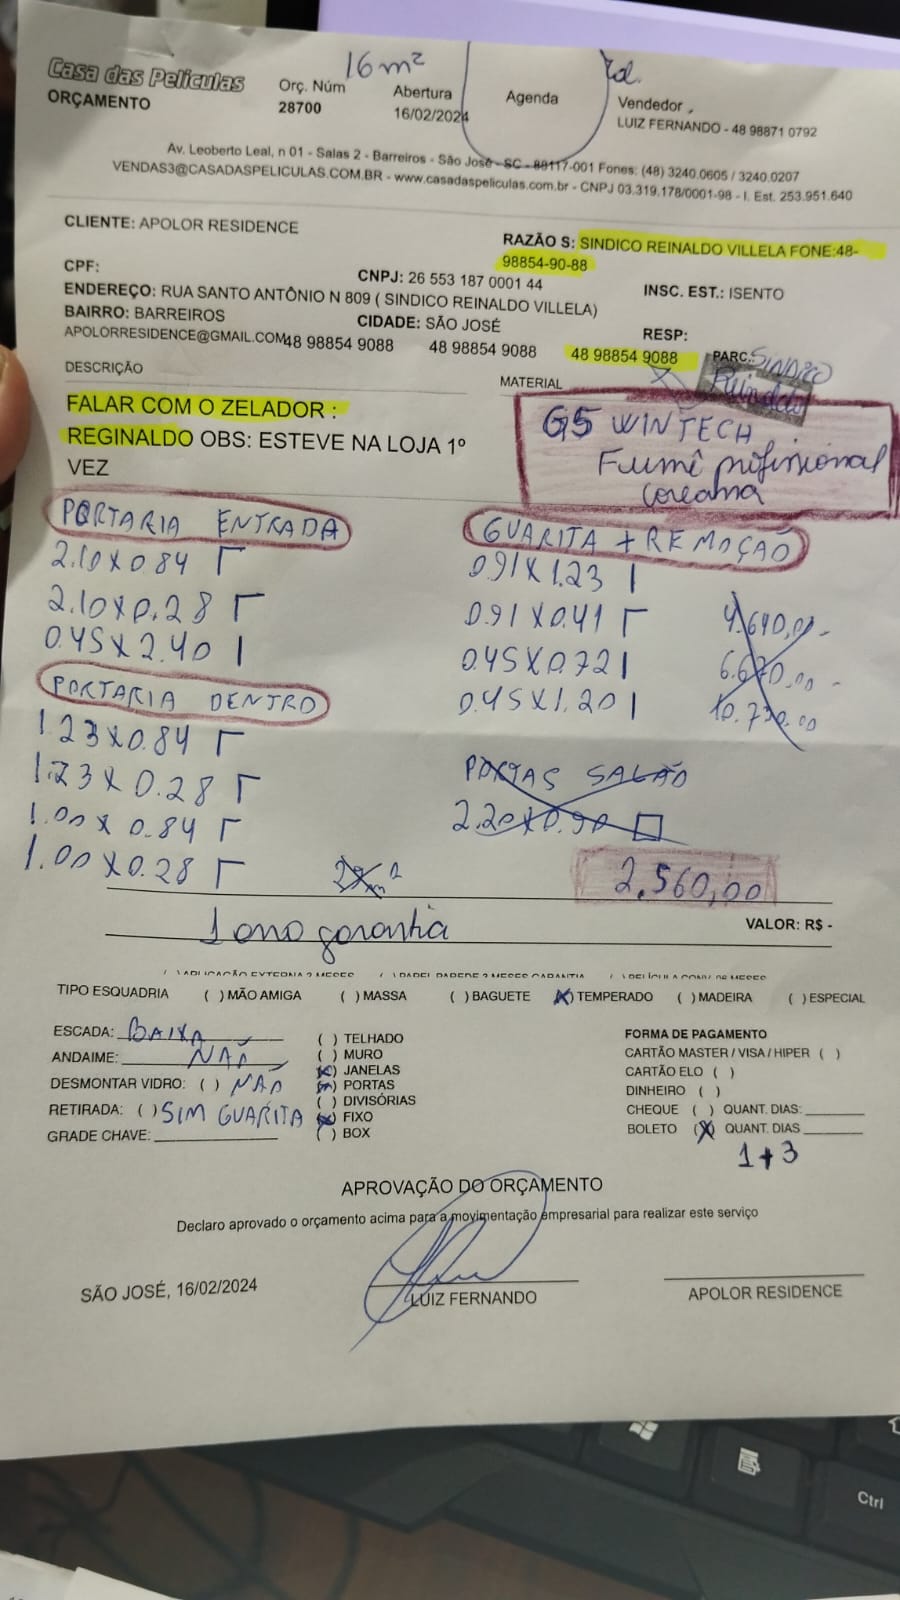 16m²
Casa das Películas
ORÇAMENTO
Orç. Núm
28700
Abertura
16/02/2024
Agenda
Vendedor
LUIZ FERNANDO - 48 98871 0792
Av. Leoberto Leal, n 01 - Salas 2 - Barreiros - São José - SC - 88117-001 Fones: (48) 3240.0605 / 3240.0207
VENDAS3@CASADASPELICULAS.COM.BR - www.casadaspeliculas.com.br - CNPJ 03.319.178/0001-98 - I. Est. 253.951.640
CLIENTE: APOLOR RESIDENCE
RAZÃO S: SINDICO REINALDO VILLELA FONE:48-
98854-90-88
CPF:
CNPJ: 26 553 187 0001 44
INSC. EST.: ISENTO
ENDEREÇO: RUA SANTO ANTÔNIO N 809 ( SINDICO REINALDO VILLELA)
BAIRRO: BARREIROS
CIDADE: SÃO JOSÉ
RESP:
APOLORRESIDENCE@GMAIL.COM
48 98854 9088
48 98854 9088
48 98854 9088
PARC:
SINDICO
DESCRIÇÃO
MATERIAL
FALAR COM O ZELADOR :
REGINALDO OBS: ESTEVE NA LOJA 1º
VEZ
G5 WINTECH
Fumê profissional
coreana
PORTARIA ENTRADA
2.10x0.84 Γ
2.10x0.28 Γ
0.45x2.40 I
PORTARIA DENTRO
1.23x0.84 Γ
1.23x0.28 Γ
1.00x0.84 Γ
1.00x0.28 Γ
GUARITA + REMOÇÃO
0.91x1.23 I
0.91x0.41 Γ
0.45x0.72 I
0.45x1.20 I
4.640,00-
PORTAS SALÃO
2.20x0.90 □
2.560,00
1 ano garantia
VALOR: R$ -
TIPO ESQUADRIA ( ) MÃO AMIGA ( ) MASSA ( ) BAGUETE (X) TEMPERADO ( ) MADEIRA ( ) ESPECIAL
ESCADA: BAIXA
ANDAIME: NÃO
DESMONTAR VIDRO: ( ) NÃO
RETIRADA: ( ) SIM GUARITA
GRADE CHAVE:
( ) TELHADO
( ) MURO
(X) JANELAS
(X) PORTAS
( ) DIVISÓRIAS
(X) FIXO
( ) BOX
FORMA DE PAGAMENTO
CARTÃO MASTER / VISA / HIPER ( )
CARTÃO ELO ( )
DINHEIRO ( )
CHEQUE ( ) QUANT. DIAS:
BOLETO (X) QUANT. DIAS
1+3
APROVAÇÃO DO ORÇAMENTO
Declaro aprovado o orçamento acima para a movimentação empresarial para realizar este serviço
SÃO JOSÉ, 16/02/2024
LUIZ FERNANDO
APOLOR RESIDENCE
Ctrl